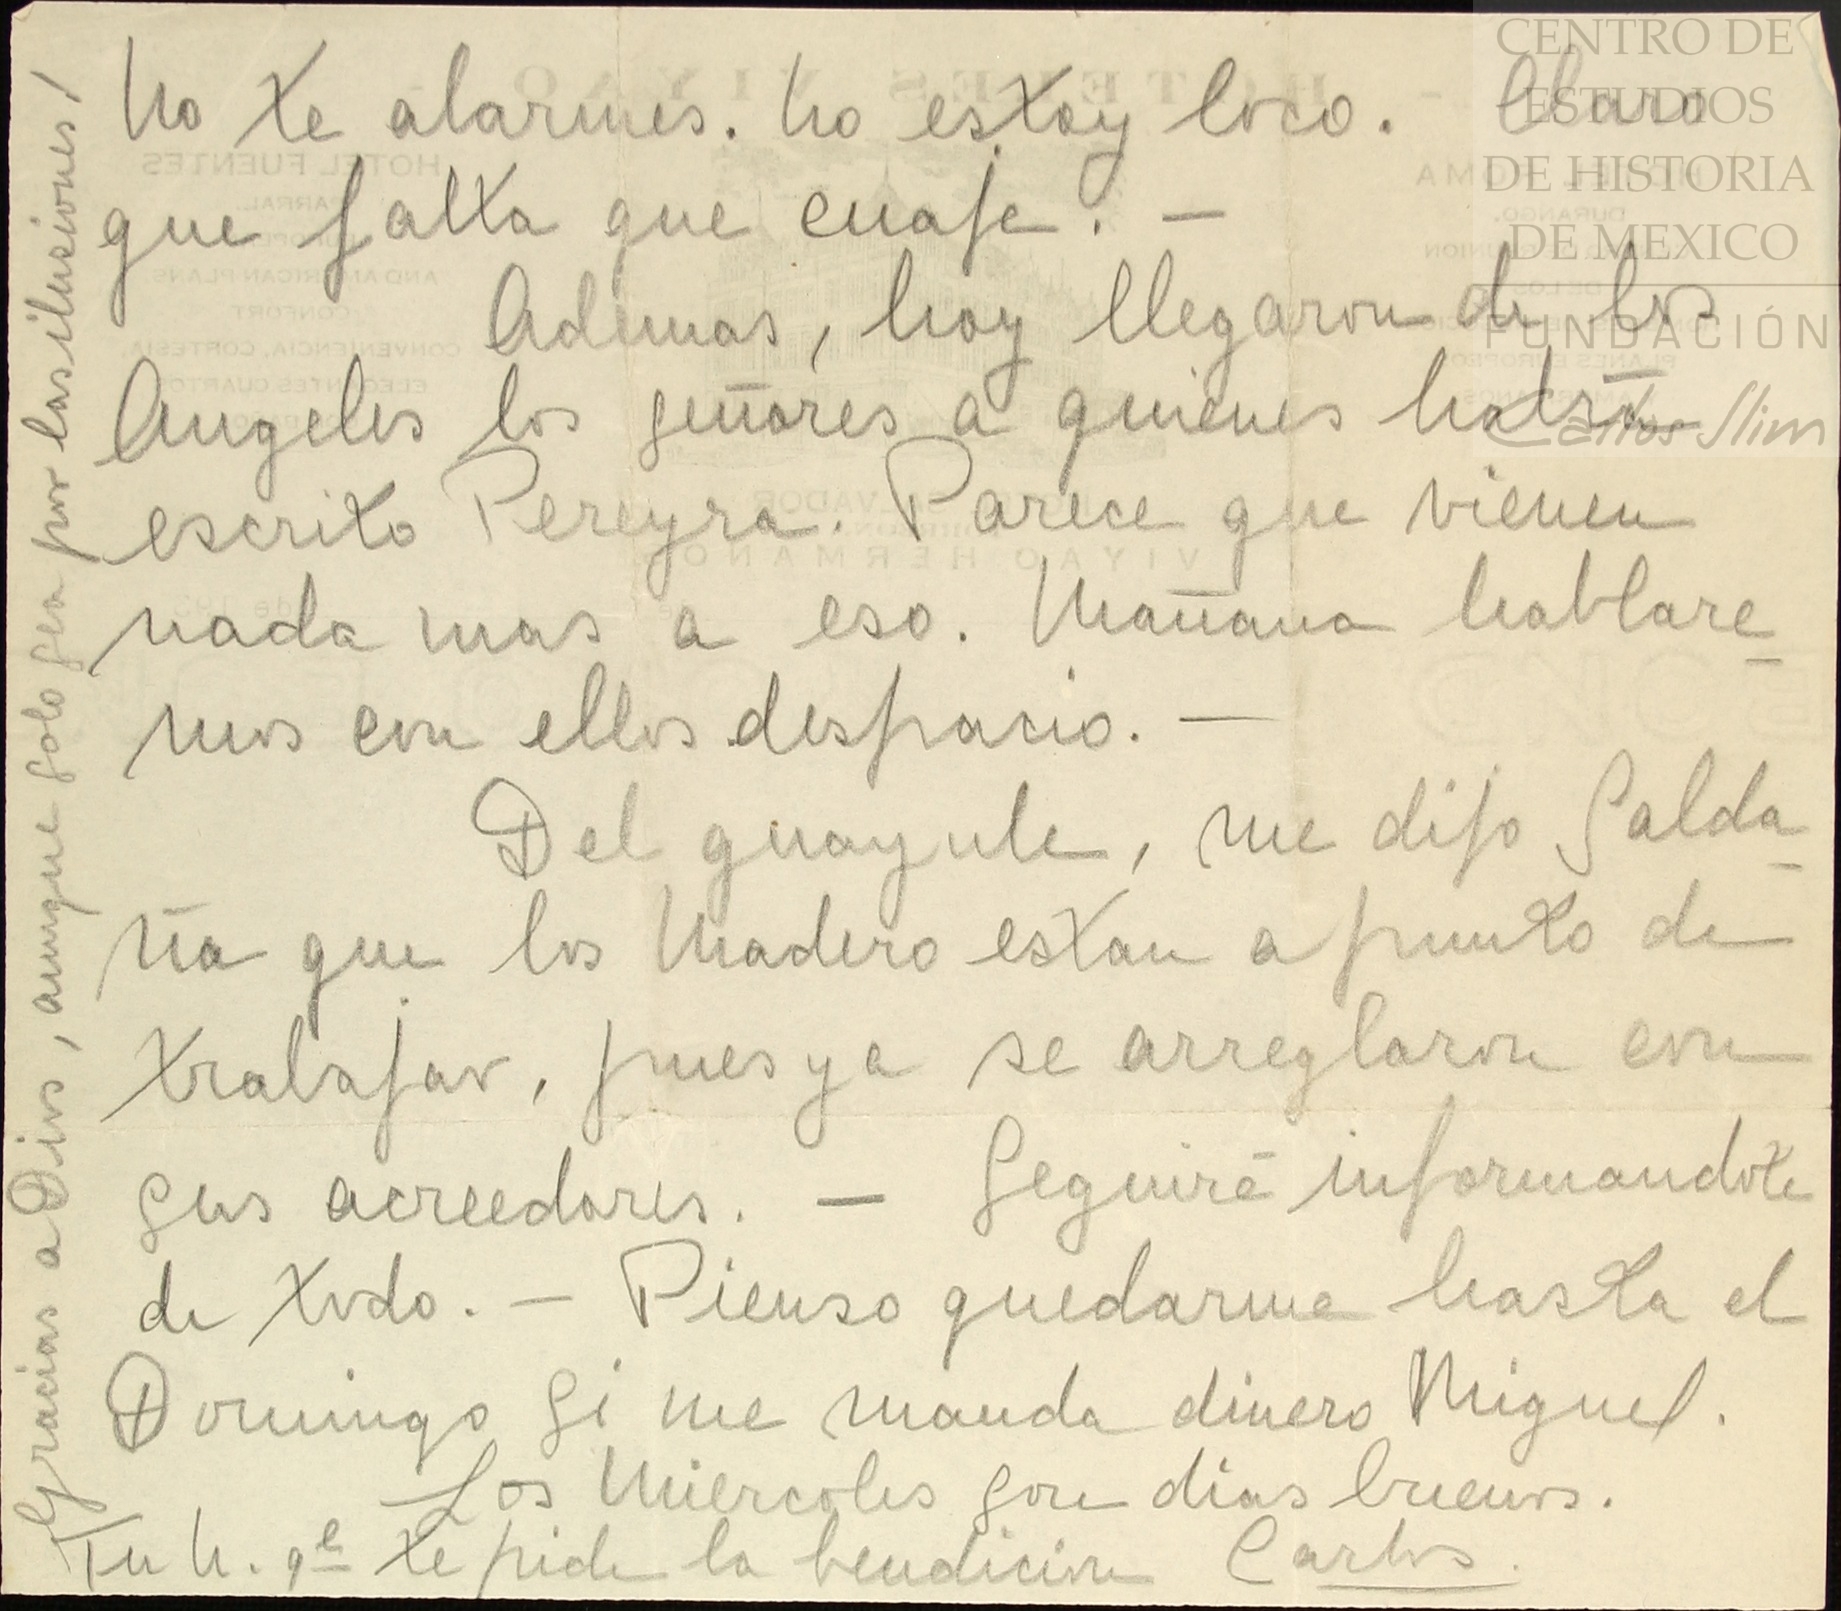 No te alarmes. No estoy loco. Claro
que falta que cuaje. —
Ademas, hoy llegaron de los
Angeles los señores a quienes habrá
escrito Pereyra. Parece que vienen
nada mas a eso. Mañana hablare-
mos con ellos despacio. —
Del guayule, me dijo Salda-
ña que los Madero estan a punto de
trabajar, pues ya se arreglaron con
sus acreedores. — Seguiré informandote
de todo. — Pienso quedarme hasta el
Domingo si me manda dinero Miguel.
Los Miercoles son dias buenos.
Tu h. qe te pide la bendicion Carlos.
Gracias a Dios, aunque solo sea por las ilusiones!
CENTRO DE
ESTUDIOS
DE HISTORIA
DE MEXICO
FUNDACIÓN
Carlos Slim
HOTELES VIYAO
HOTEL FUENTES
PARRAL
AND AMERICAN PLANS.
CONFORT
CONVENIENCIA, CORTESIA.
ELEGANTES CUARTOS
DURANGO.
VIYAO HERMANOS
de 193